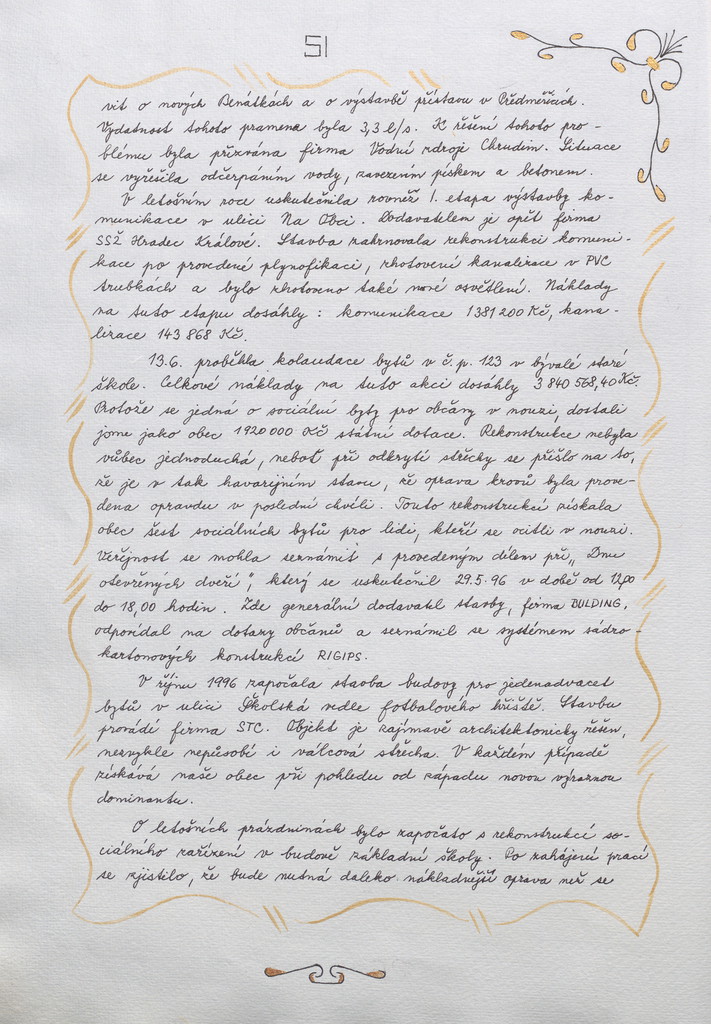 51
vit o nových Benátkách a o výstavbě přístavu v Předměřicích.
Vydatnost tohoto pramene byla 3,3 l/s. K řešení tohoto pro-
blému byla přizvána firma Vodní zdroje Chrudim. Situace
se vyřešila odčerpáním vody, zavezením pískem a betonem.
V letošním roce uskutečnila rovněž 1. etapa výstavby ko-
munikace v ulici Na Obci. Dodavatelem je opět firma
SSŽ Hradec Králové. Stavba zahrnovala rekonstrukci komuni-
kace po provedené plynofikaci, zhotovení kanalizace v PVC
trubkách a bylo zhotoveno také nové osvětlení. Náklady
na tuto etapu dosáhly: komunikace 1 381 200 Kč, kana-
lizace 143 868 Kč.
13.6. proběhla kolaudace bytů v č.p. 123 v bývalé staré
škole. Celkové náklady na tuto akci dosáhly 3 840 568,40 Kč.
Protože se jedná o sociální byty pro občany v nouzi, dostali
jsme jako obec 1 920 000 Kč státní dotace. Rekonstrukce nebyla
vůbec jednoduchá, neboť při odkrytí střechy se přišlo na to,
že je v tak havarijním stavu, že oprava krovů byla prove-
dena opravdu v poslední chvíli. Touto rekonstrukcí získala
obec šest sociálních bytů pro lidi, kteří se ocitli v nouzi.
Veřejnost se mohla seznámit s provedeným dílem při „Dnu
otevřených dveří", který se uskutečnil 29.5.96 v době od 12,00
do 18,00 hodin. Zde generální dodavatel stavby, firma BULDING,
odpovídal na dotazy občanů a seznámil se systémem sádro-
kartonových konstrukcí RIGIPS.
V říjnu 1996 započala stavba budovy pro jedenadvacet
bytů v ulici Školská vedle fotbalového hřiště. Stavbu
provádí firma STC. Objekt je zajímavě architektonicky řešen,
nezvykle nepůsobí i válcová střecha. V každém případě
získává naše obec při pohledu od západu novou výraznou
dominantu.
O letošních prázdninách bylo započato s rekonstrukcí so-
ciálního zařízení v budově základní školy. Po zahájení prací
se zjistilo, že bude nutná daleko nákladnější oprava než se